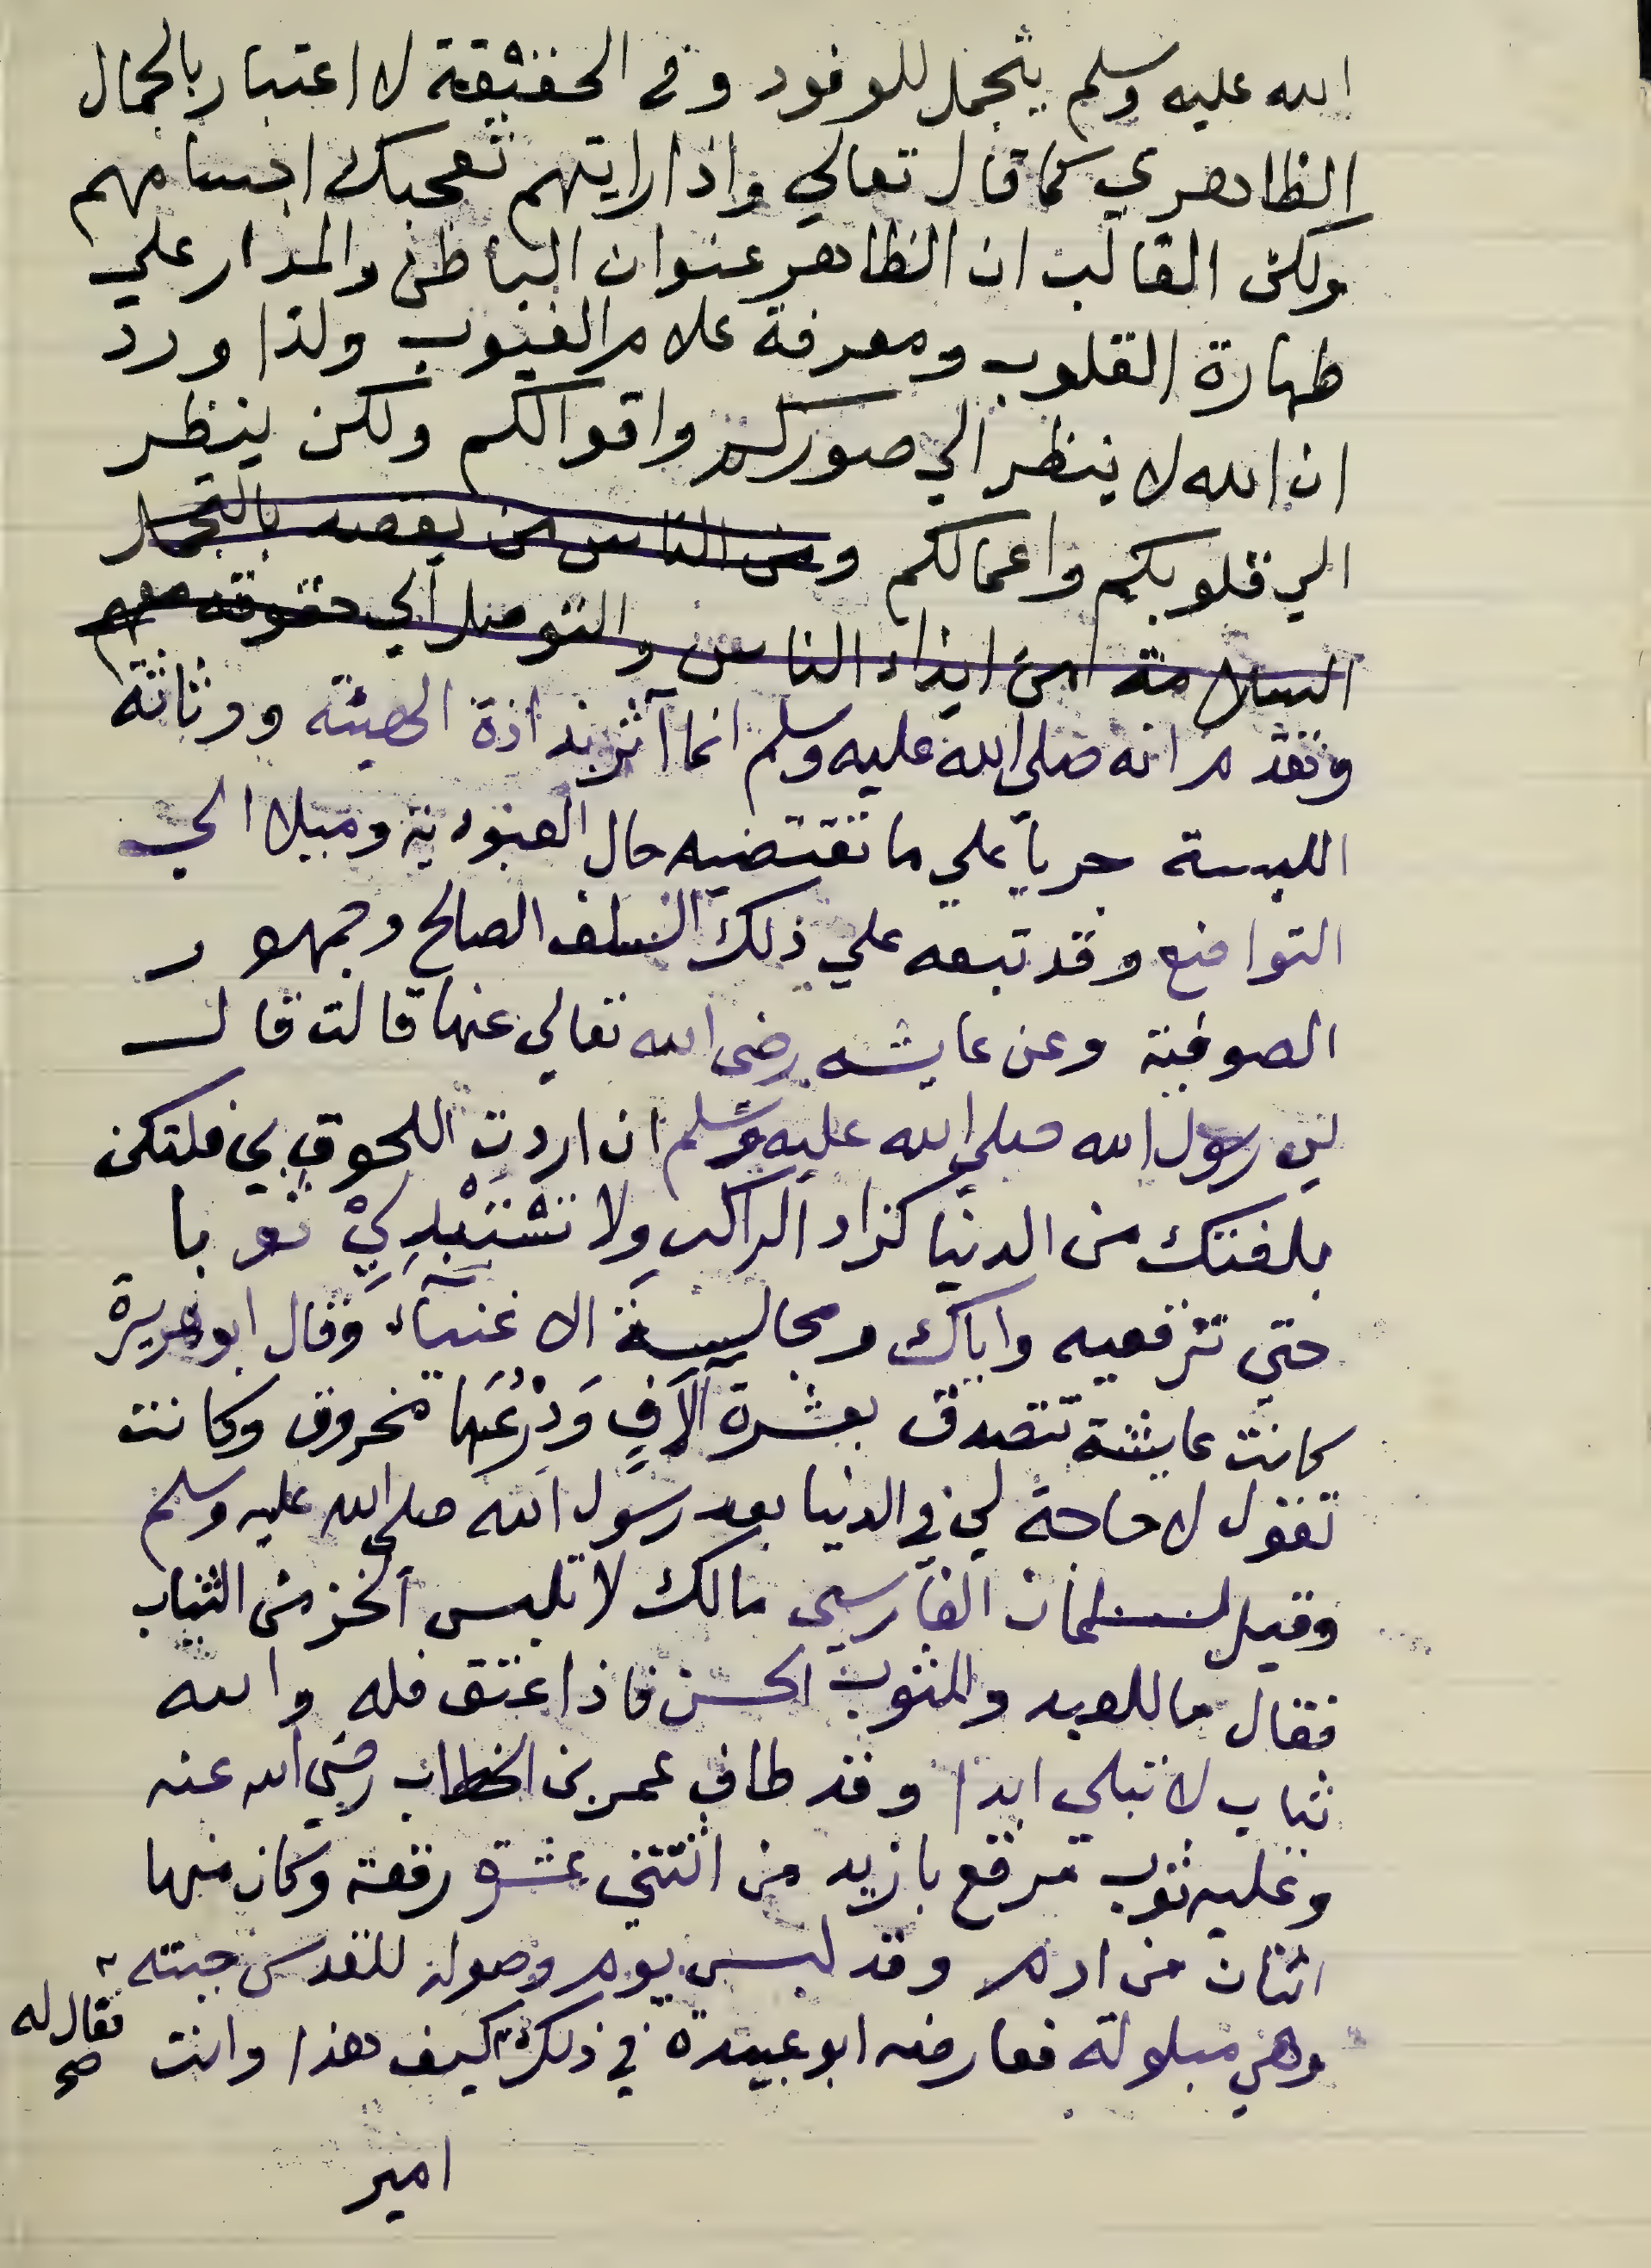 الله عليه وسلم يتجمل للوفود وفى الحقيقة لا اعتبار بالجمال
الظاهري كما قال تعالي واذا رايتهم تعجبك اجسامهم
ولكن الغالب ان الظاهر عنوان الباطن والمدار علي
طهارة القلوب ومعرفة علام الغيوب ولذا ورد
ان الله لا ينظر الي صوركم واقوالكم ولكن ينظر
الي قلوبكم واعمالكم ومن الناس من يقصد بالتجمل
السلامة من ايذاء الناس والتوصل الي حقوقه معهم
وتقدم انه صلى الله عليه وسلم انما آثر بذاذة الهيئة ورثاثة
اللبسة جرياً علي ما تقتضيه حال العبودية وميلا الي
التواضع وقد تبعه علي ذلك السلف الصالح وجمهور
الصوفية وعن عايشه رضى الله تعالي عنها قالت قال
لي رسول الله صلي الله عليه وسلم ان اردت اللحوق بي فلتكن
بلغتك من الدنيا كزاد الراكب ولا تَسْتَبْدِلِيْ ثوبا
حتي ترقعيه واياك ومجالسة الاغنيآء وقال ابو هريرة
كانت عايشة تتصدق بعشرة آلافٍ وَدِرْعُهَا مخروق وكانت
تقول لا حاجة لي في الدنيا بعد رسول الله صلى الله عليه وسلم
وقيل لسلمان الفارسي مالك لا تلبس الخز من الثياب
فقال ما للعبد والثوب الحسن فاذا عتق فله والله
ثياب لا تبلي ابدا وقد طاف عمر بن الخطاب رضي الله عنه
وعليه ثوب مرقع بازيد من اثنتي عشرة رقعة وكان منها
اثنان من ادم وقد لبس يوم وصوله للقدس جبته
وهي مبلولة فعارضه ابو عبيدة في ذلك كيف هذا وانت
فقال له
صح
امير